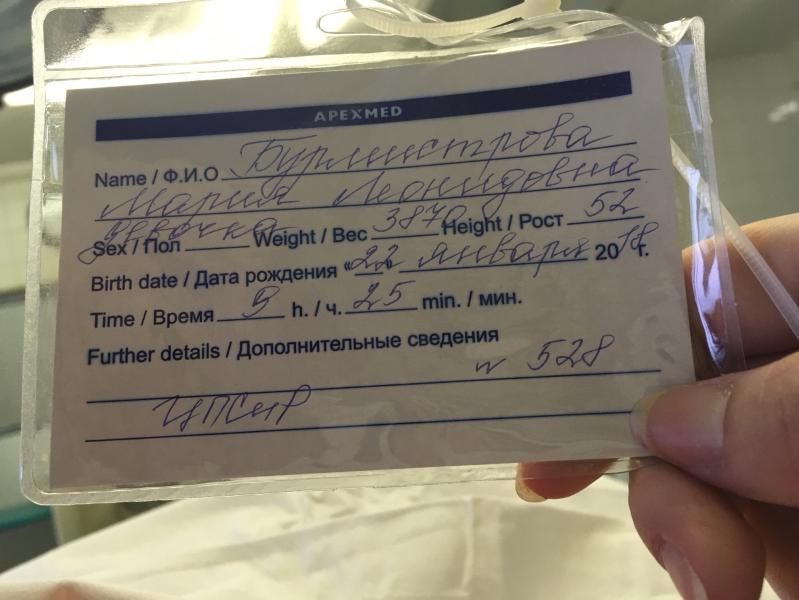 APEXMED
Name / Ф.И.О Бурмистрова
Мария Леонидовна
девочка
Sex / Пол Weight / Вес 3870 Height / Рост 52
Birth date / Дата рождения «22» января 2018 г.
Time / Время 9 h. / ч. 25 min. / мин.
Further details / Дополнительные сведения
N 528
ЦПСиР